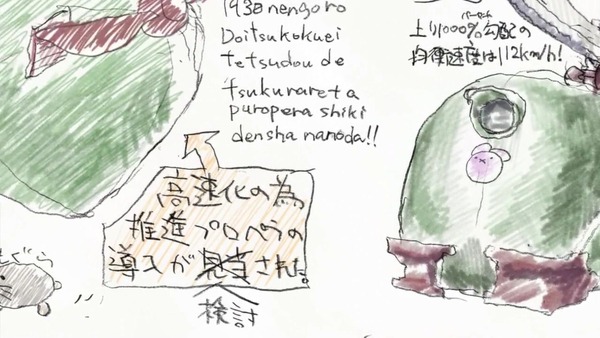 1930nengoro
Doitsukokuei
tetsudou de
tsukurareta
puropera shiki
densha nanoda!!
上り1000%勾配の
均衡速度は112km/h!
高速化の為、
推進プロペラの
導入が見当された。
検討
ぐら